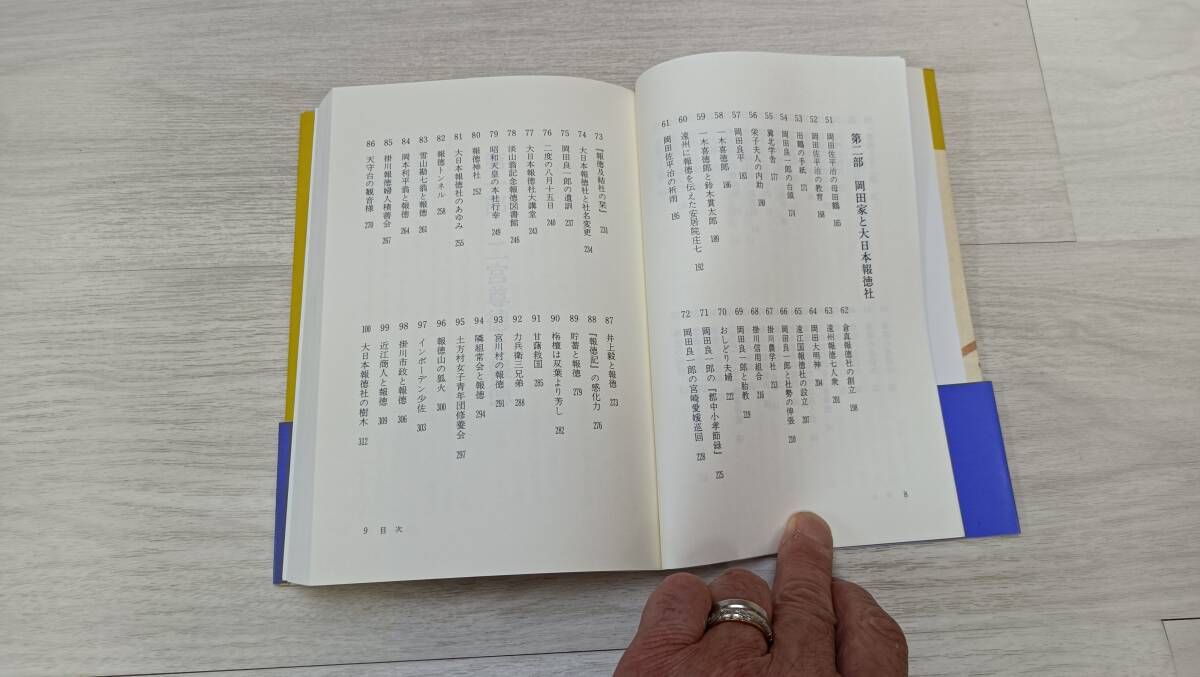 第二部　岡田家と大日本報徳社
51　岡田佐平治の母田鶴　165
52　岡田佐平治の教育　168
53　田鶴の手紙　171
54　岡田良一郎の台頭　174
55　冀北学舎　177
56　栄子夫人の内助　180
57　岡田良平　183
58　一木喜徳郎　186
59　一木喜徳郎と鈴木貫太郎　189
60　遠州に報徳を伝えた安居院庄七　192
61　岡田佐平治の祈雨　195
62　倉真報徳社の創立　198
63　遠州報徳七人衆　201
64　岡田大明神　204
65　遠江国報徳社の設立　207
66　岡田良一郎と社勢の伸張　210
67　掛川農学社　213
68　掛川信用組合　216
69　岡田良一郎と胎教　219
70　おしどり夫婦　222
71　岡田良一郎の『郡中小孝節録』　225
72　岡田良一郎の宮崎愛媛巡回　228
8
73　『報徳及結社の栞』　231
74　大日本報徳社と社名変更　234
75　岡田良一郎の遺訓　237
76　二度の八月十五日　240
77　大日本報徳社大講堂　243
78　淡山翁記念報徳図書館　246
79　昭和天皇の本社行幸　249
80　報徳神社　252
81　大日本報徳社のあゆみ　255
82　報徳トンネル　258
83　雪山勘七翁と報徳　261
84　岡本利平翁と報徳　264
85　掛川報徳婦人積善会　267
86　天守台の観音様　270
87　井上毅と報徳　273
88　『報徳記』の感化力　276
89　貯蓄と報徳　279
90　栴檀は双葉より芳し　282
91　甘藷救国　285
92　力兵衛三兄弟　288
93　宮川村の報徳　291
94　隣組常会と報徳　294
95　土方村女子青年団修養会　297
96　報徳山の狐火　300
97　インボーデン少佐　303
98　掛川市政と報徳　306
99　近江商人と報徳　309
100　大日本報徳社の樹木　312
9　目　次